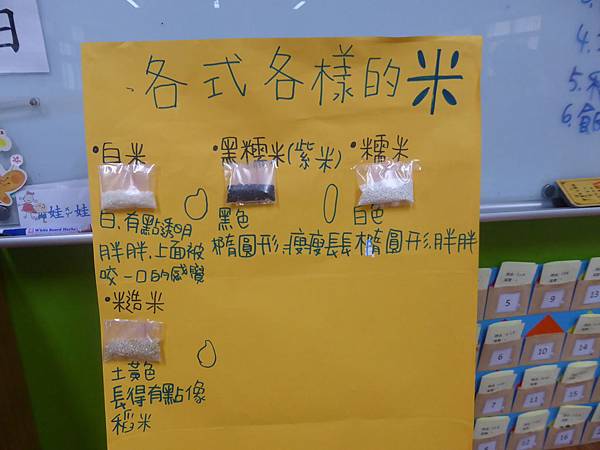 各式各樣的米
•白米
白,有點透明
胖胖,上面被
咬一口的感覺
•黑糯米(紫米)
黑色
橢圓形,瘦瘦長長
•糯米
白色
橢圓形,胖胖
•糙米
土黃色
長得有點像
稻米
日
娃娃
White Board Marker
5.
6.飽
5
9
13
6
10
14
7
11
15
8
12
16